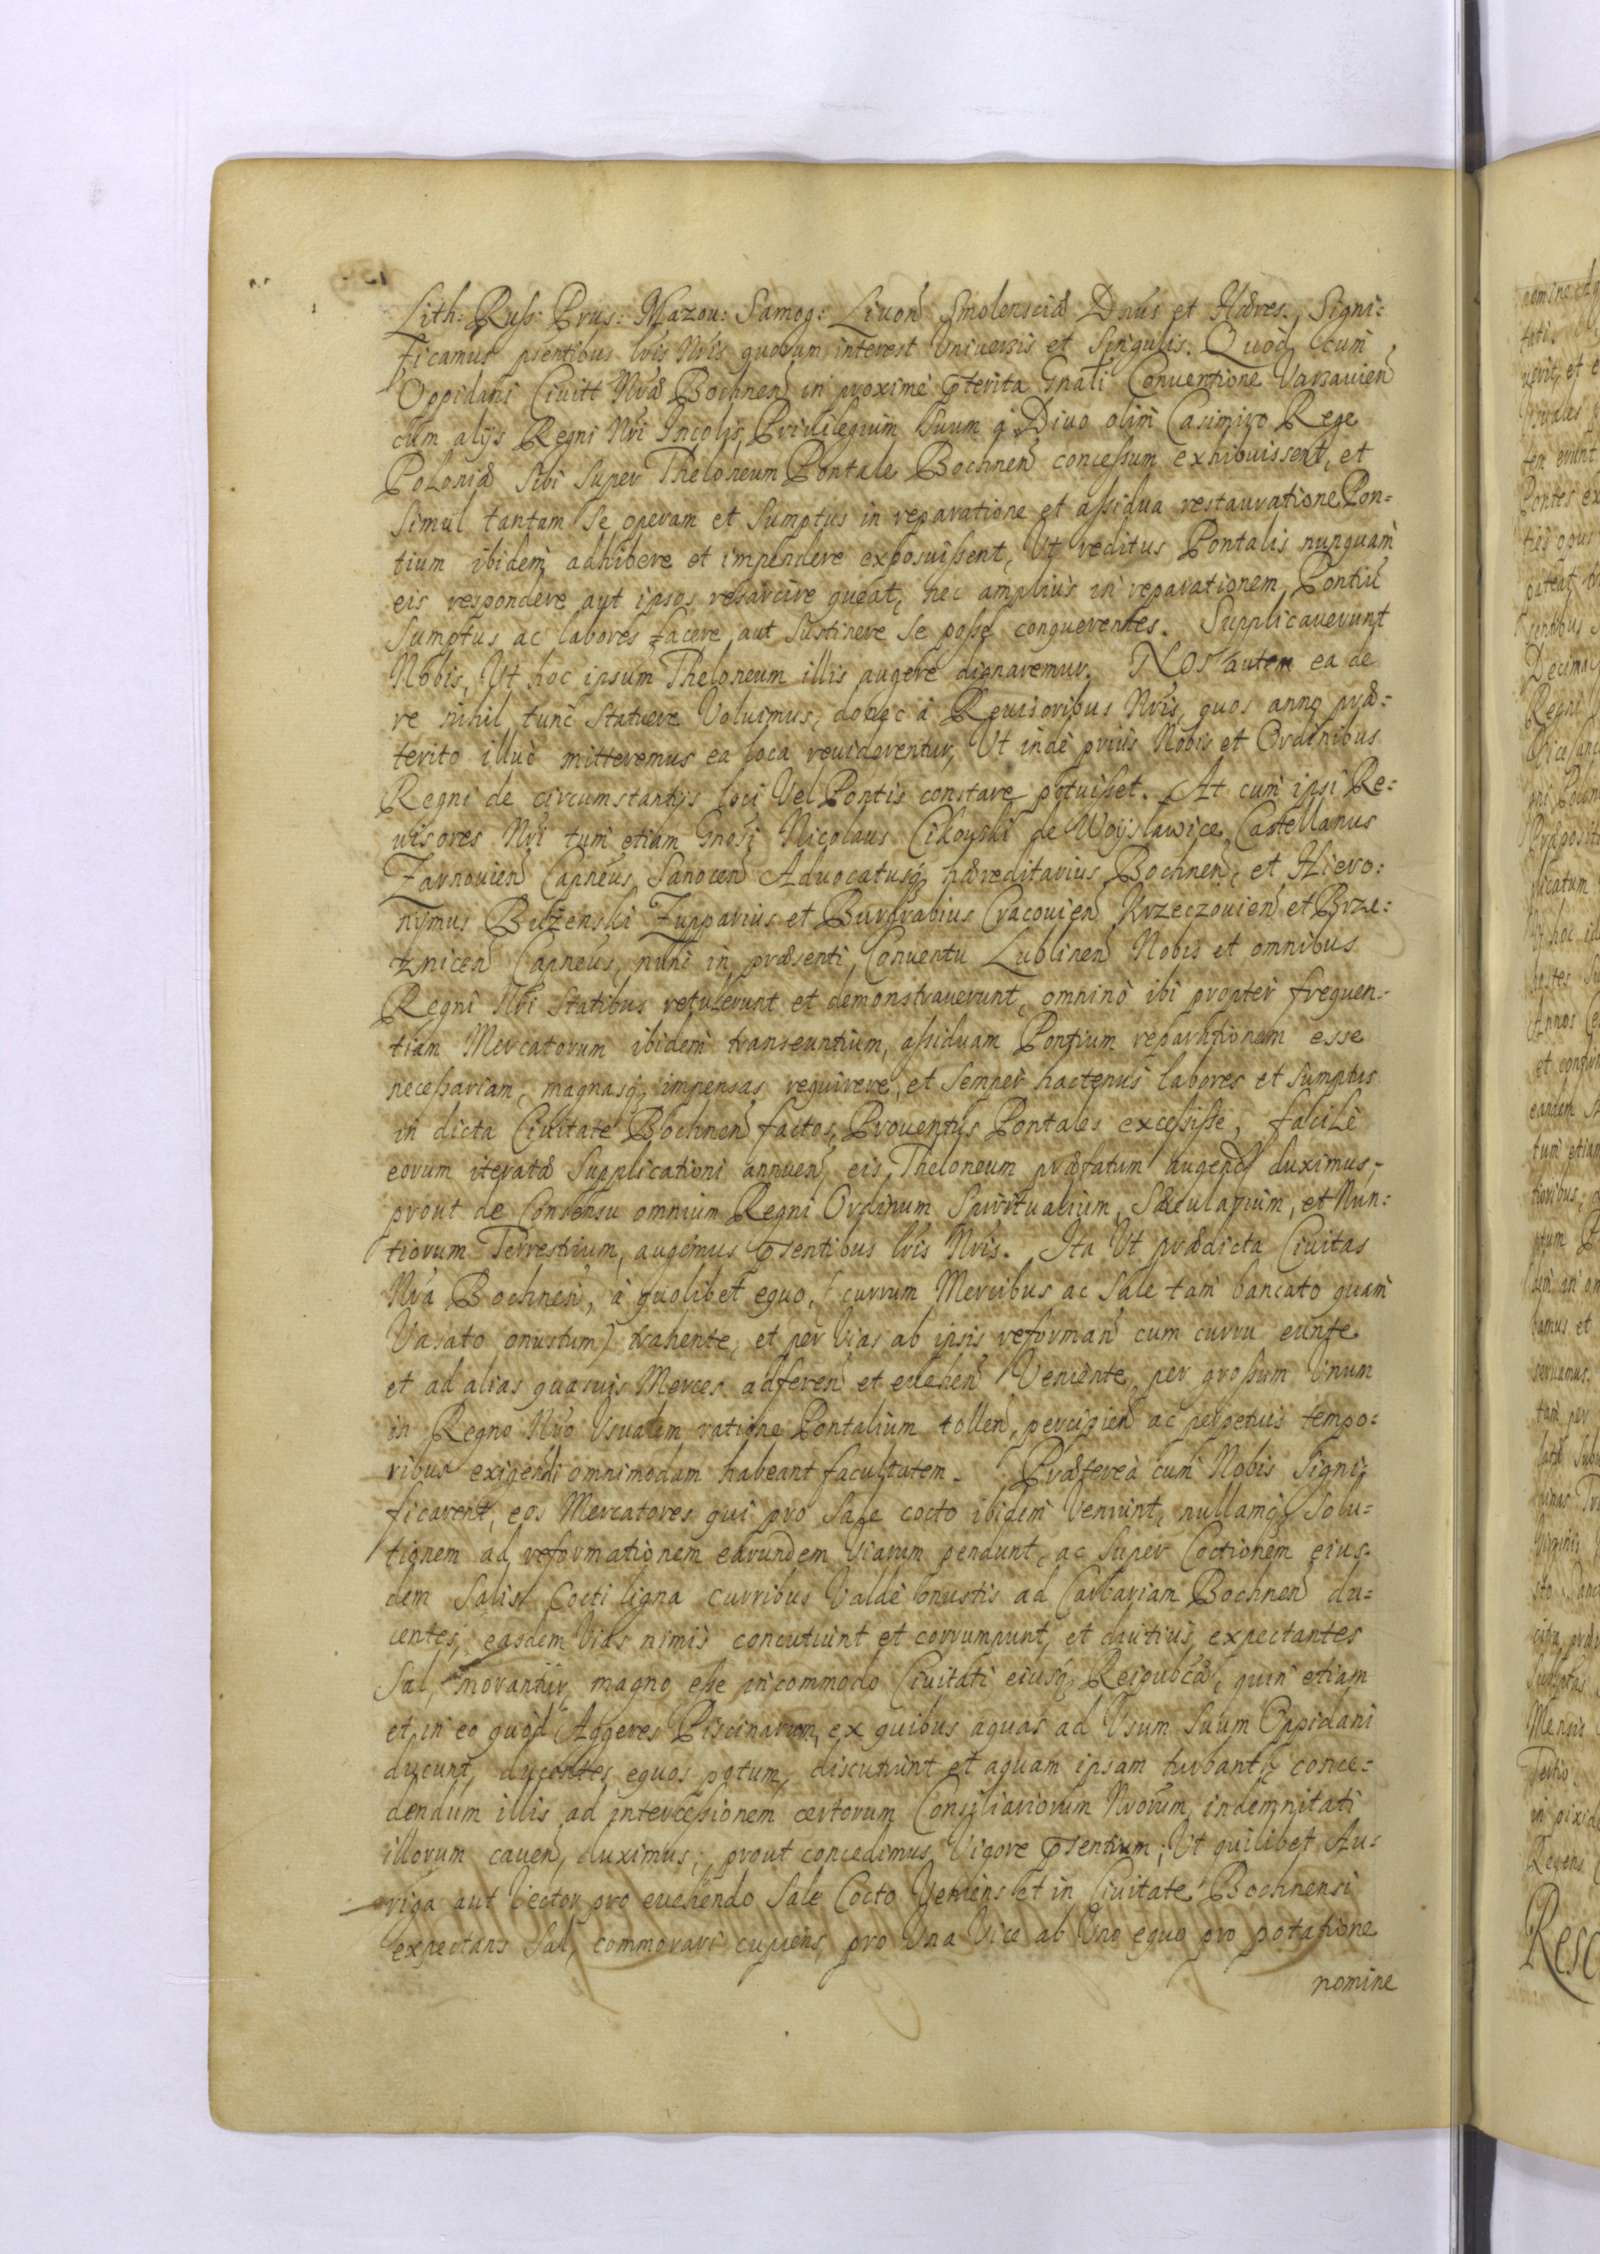 Lith: Russ: Prus: Mazou: Samog: Livon Smolensciæ Dnus et Hæres. Signi:
ficamus psentibus lris Nris quorum interest Universis et Singulis. Quòd cum
Oppidani Civitt Nræ Bochnen in proximè pterita Gnali Conventione Varsavien
cum alijs Regni Nri Incolis, Privilegium Suum q Divo olim Casimiro Rege
Poloniæ Sibi Super Theloneum Pontale Bochnen concessum exhibuissent, et
Simul tantam Se operam et Sumptus in reparatione et assidua restauratione Pon=
tium ibidem adhibere et impendere exposuissent, Ut reditus Pontalis nunquam
eis respondere aut ipsos resarcire queat, nec amplius in reparationem Pontiu
Sumptus ac labores facere aut Sustinere Se posse conquerentes. Supplicaverunt
Nobis, Ut hoc ipsum Theloneum illis augere dignaremur. Nos autem ea de
re nihil tunc Statuere Voluimus, donec à Revisoribus Nris, quos anno præ=
terito illuc mitteremus ea loca reviderentur, Ut inde prius Nobis et Ordinibus
Regni de circumstantijs loci Vel Pontis constare potuisset. At cum ipsi Re=
visores Nri tum etiam Gnosi Nicolaus Cikowski de Woyslawice Castellanus
Zarnovien Capneus Sanocen Advocatusq hæreditarius Bochnen, et Hiero:
nymus Buzenski Zupparius et Burgrabius Cracovien Krzeczovien et Brze:
znicen Capneus, nunc in præsenti Conventu Lublinen Nobis et omnibus
Regni Nri Statibus retulerunt et demonstraverunt, omninò ibi propter frequen=
tiam Mercatorum ibidem transeuntium, assiduam Pontium reparationem esse
necessariam, magnasq impensas requirere, et Semper hactenus labores et Sumptus
in dicta Civitate Bochnen factos, Proventus Pontales excessisse, facilè
eorum iteratæ Supplicationi annuen, eis Theloneum præfatum augend duximus,
prout de Consensu omnium Regni Ordinum Spiritualium, Sæcularium, et Nun:
tiorum Terrestrium, augemus psentibus lris Nris. Ita Ut prædicta Civitas
Nra Bochnen, à quolibet equo, (currum Mercibus ac Sale tam bancato quam
Vasato onustum) trahente, et per Vias ab ipsis reforman cum curru eunte
et ad alias quasvis Merces adferen et evehen Veniente, per grossum Unum
in Regno Nro Usualem ratione Pontalium tollen, percipien ac perpetuis tempo=
ribus exigendi omnimodam habeant facultatem. Prætereà cum Nobis Signi,
ficarent, eos Mercatores qui pro Sale cocto ibidem Veniunt, nullamq Solu=
tionem ad reformationem earundem Viarum pendunt, ac Super Coctionem eius=
dem Salis Cocti ligna curribus Valdè onustis ad Carbariam Bochnen du=
centes, easdem Vias nimis concutiunt et corrumpunt, et diutius expectantes
Sal, morantur, magno esse incommodo Civitati eiusq Reipubcæ, quin etiam
et in eo quòd Aggeres Piscinarum, ex quibus aquas ad Usum Suum Oppidani
ducunt, ducentes equos potum, discutiunt et aquam ipsam turbant; conce=
dendum illis ad intercessionem certorum Consiliariorum Nrorum indemnitati
illorum caven, duximus; prout concedimus Vigore psentium; Ut quilibet Au=
riga aut Vector pro evehendo Sale Cocto Veniens et in Civitate Bochnensi
expectans Sal, commorari cupiens, pro Una Vice ab Uno equo pro potatione
nomine